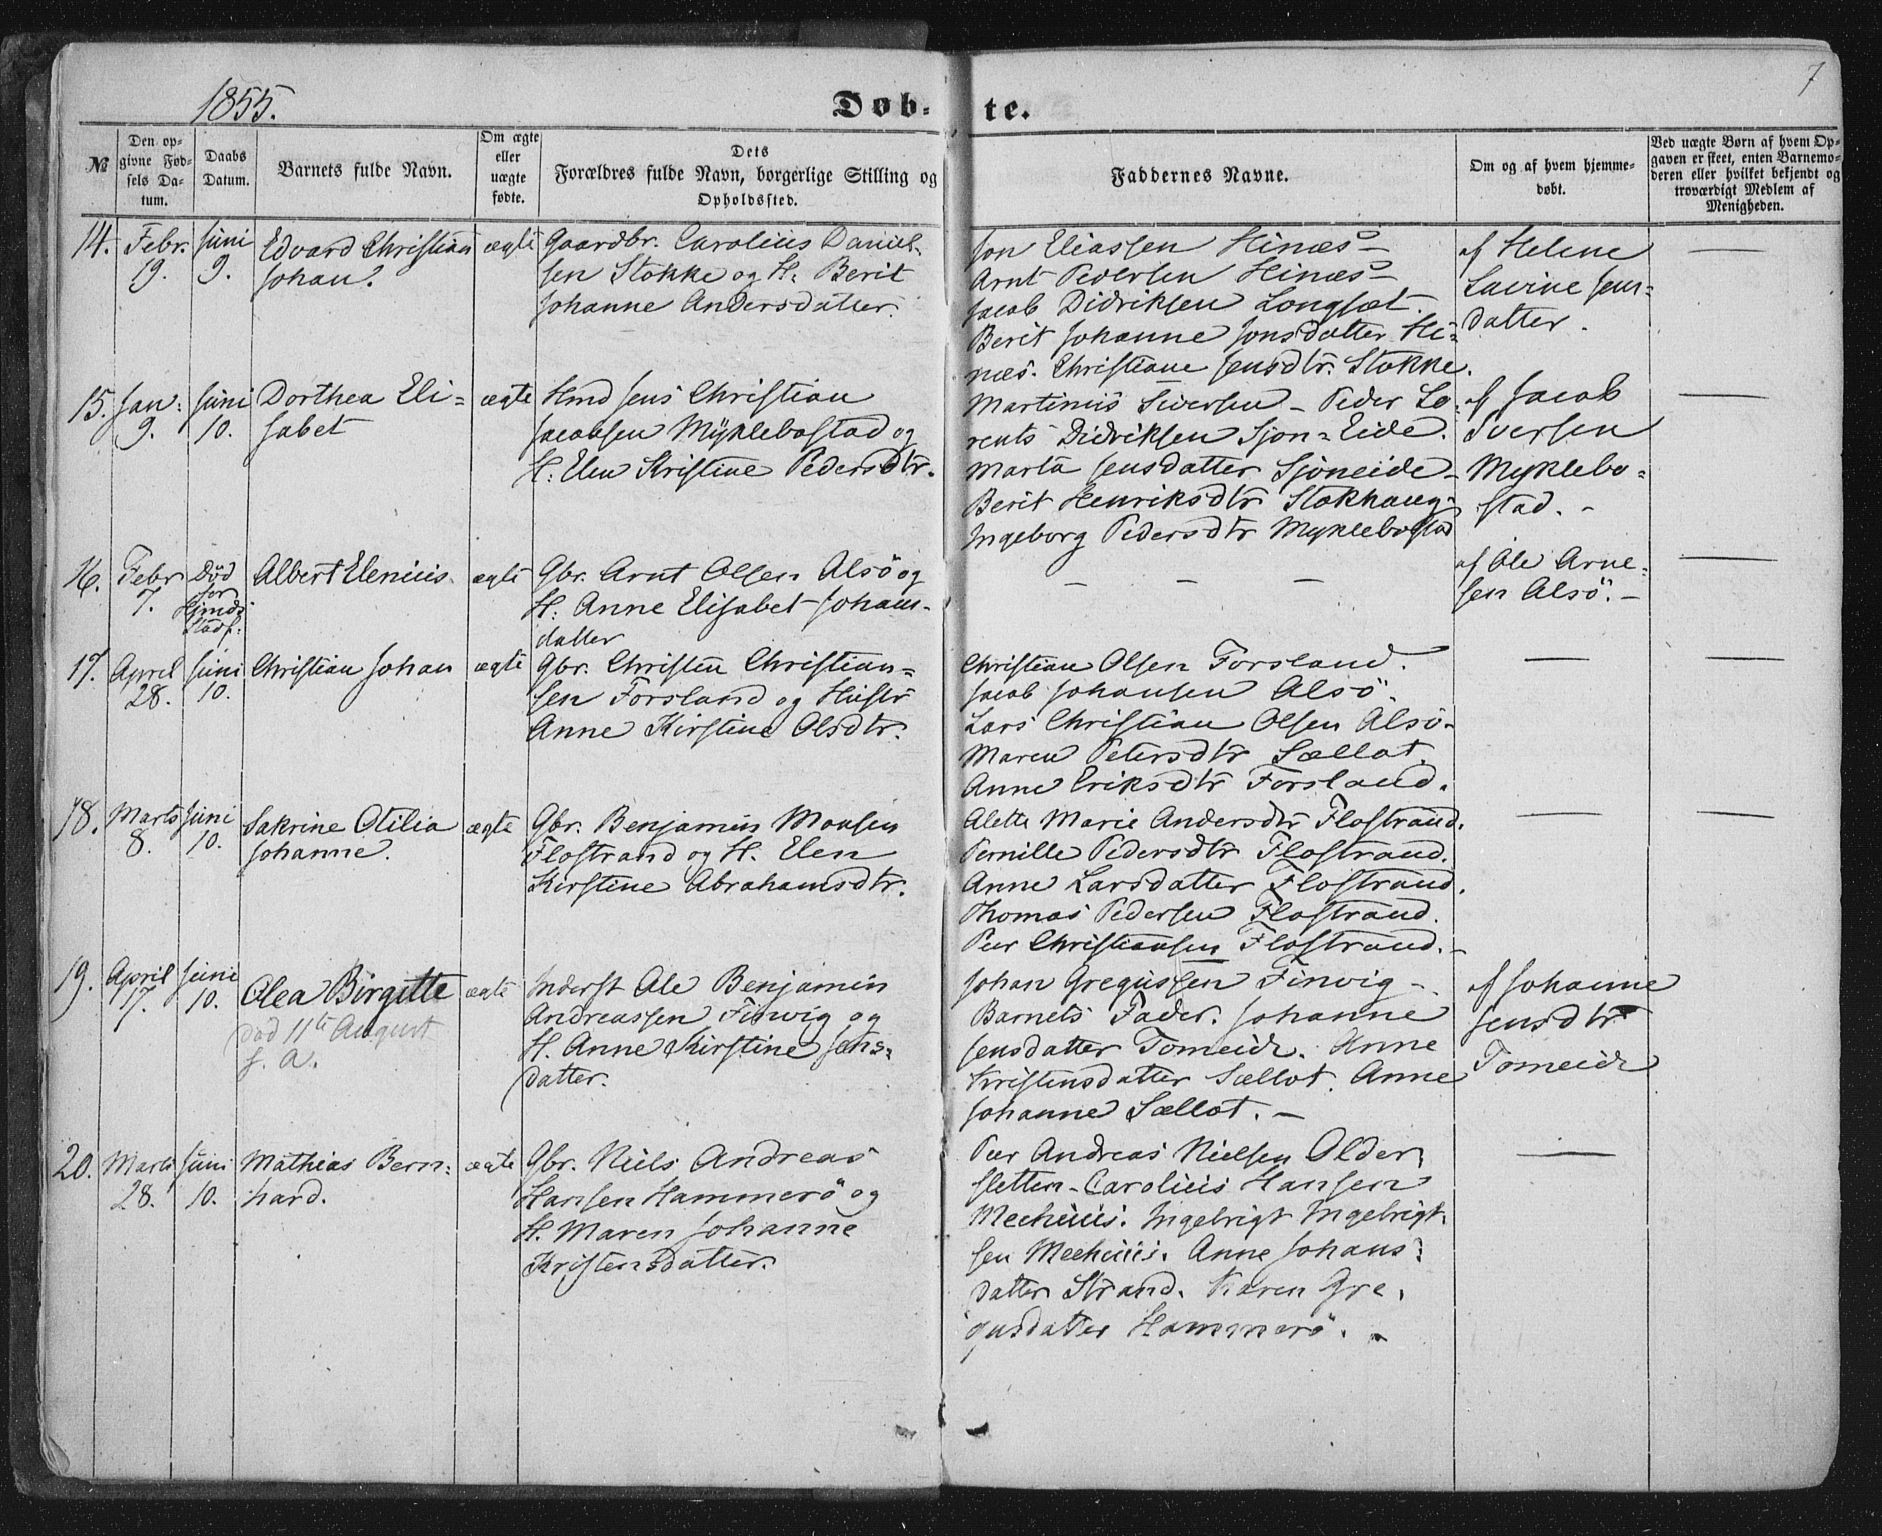 1855.
Døb-
te.
7
№
Den op-
givne Fød-
sels Da-
tum.
Daabs
Datum.
Barnets fulde Navn.
Om ægte
eller
uægte
fødte.
Dets
Forældres fulde Navn, borgerlige Stilling og
Opholdssted.
Faddernes Navne.
Om og af hvem hjemme-
døbt.
Ved uægte Børn af hvem Op-
gaven er skeet, enten Barnemo-
deren eller hvilket bekjendt og
troværdigt Medlem af
Menigheden.
14.
Febr.
19.
Juni
9.
Edvard Christian
Johan.
ægte
Gaardbr. Carolius Daniel-
sen Stokke og H. Berit
Johanne Andersdatter.
Jon Eliassen Hinæs -
Arnt Pedersen Hinæs -
Jacob Didriksen Longset.
Berit Johanne Jonsdatter Hi-
næs. Christiane Jensdtr. Stokke.
af Helene
Lavine Jens-
datter.
15.
Jan.
9.
Juni
10.
Dorthea Eli-
sabet
ægte
Hmd Jens Christian
Jacobsen Myklebostad og
H. Elen Kristine Pedersdtr.
Martinus Sivertsen - Peder Lo-
rents Didriksen Sjon-Eide.
Marta Jensdatter Sjoneide -
Berit Henriksdtr Stokhaug -
Ingeborg Pedersdtr Myklebostad
af Jacob
Iversen
Myklebo-
stad. -
16.
Febr
7.
Død
før
Hjmds
Stadf.
Albert Elenius.
ægte
Gbr. Arnt Olsen Alsö og
H. Anne Elisabet Johans-
datter
- - -
af Ole Arne-
sen Alsö. -
17.
April
28.
Juni
10.
Christian Johan
ægte
Gbr. Christen Christian-
sen Forsland og Hustr
Anne Kirstine Olsdtr.
Christian Olsen Forsland.
Jacob Johansen Alsö.
Lars Christian Olsen Alsö -
Maren Petersdtr Sællot.
Anne Eriksdtr Forsland.
18.
Marts
8.
Juni
10.
Sakrine Otilia
Johanne.
ægte
Gbr. Benjamin Monsen
Flostrand og H. Elen
Kirstine Abrahamsdtr.
Alette Marie Andersdtr Flostrand.
Pernille Pedersdtr Flostrand.
Anne Larsdatter Flostrand.
Thomas Pedersen Flostrand.
Peer Christiansen Flostrand. -
19.
April
17.
Juni
10.
Olea Birgitte
død 11te August
s. a.
ægte
Inderst Ole Benjamin
Andreassen Finvig og
H. Anne Kirstine Jens-
datter.
Johan Gregussen Finvig -
Barnets Fader. Johanne
Jensdatter Tomeide. Anne
Kristensdatter Sællot. Anne
Johanne Sællot. -
af Johanne
Jensdtr
Tomeide
20.
Marts
28.
Juni
10.
Mathias Bern-
hard.
ægte
Gbr. Niels Andreas
Hansen Hammerö og
H. Maren Johanne
Kristensdatter.
Peer Andreas Nielsen Older-
sletten - Carolius Hansen
Ingebrigt Ingebrigt-
sen Anne Johans-
datter Strand. Karen Gre-
gusdatter Hammerö.